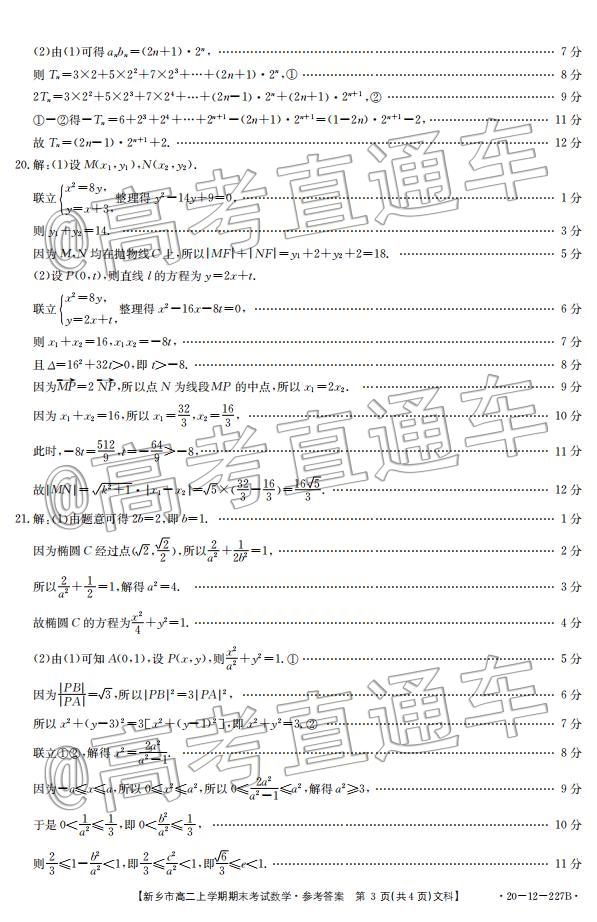 (2)由(1)可得 aₙbₙ=(2n+1)·2ⁿ, …… 7 分
则 Tₙ=3×2+5×2²+7×2³+…+(2n+1)·2ⁿ,① …… 8 分
2Tₙ=3×2²+5×2³+7×2⁴+…+(2n−1)·2ⁿ+(2n+1)·2ⁿ⁺¹,② …… 9 分
①−②得−Tₙ=6+2³+2⁴+…+2ⁿ⁺¹−(2n+1)·2ⁿ⁺¹=(1−2n)·2ⁿ⁺¹−2, …… 11 分
故 Tₙ=(2n−1)·2ⁿ⁺¹+2. …… 12 分
20.解:(1)设 M(x₁,y₁),N(x₂,y₂).
联立{x²=8y, y=x+3, 整理得 y²−14y+9=0, …… 1 分
则 y₁+y₂=14. …… 3 分
因为 M,N 均在抛物线 C 上,所以|MF|+|NF|=y₁+2+y₂+2=18. …… 5 分
(2)设 P(0,t),则直线 l 的方程为 y=2x+t.
联立{x²=8y, y=2x+t, 整理得 x²−16x−8t=0, …… 6 分
则 x₁+x₂=16,x₁x₂=−8t, …… 7 分
且 Δ=16²+32t>0,即 t>−8. …… 8 分
因为MP=2 NP,所以点 N 为线段MP 的中点,所以 x₁=2x₂. …… 9 分
因为 x₁+x₂=16,所以 x₁=32/3,x₂=16/3, …… 10 分
此时,−8t=512/9,t=−64/9>−8, …… 11 分
故|MN|=√(k²+1)·|x₁−x₂|=√5×(32/3−16/3)=16√5/3. …… 12 分
21.解:(1)由题意可得 2b=2,即 b=1. …… 1 分
因为椭圆 C 经过点(√2,√2/2),所以2/a²+1/2b²=1, …… 2 分
所以2/a²+1/2=1,解得 a²=4. …… 3 分
故椭圆 C 的方程为x²/4+y²=1. …… 4 分
(2)由(1)可知 A(0,1),设 P(x,y),则x²/a²+y²=1.① …… 5 分
因为|PB|/|PA|=√3,所以|PB|²=3|PA|², …… 6 分
所以 x²+(y−3)²=3[x²+(y−1)²],即 x²+y²=3.② …… 7 分
联立①②,解得 x²=2a²/(a²−1). …… 8 分
因为−a≤x≤a,所以 0≤x²≤a²,所以 0≤2a²/(a²−1)≤a²,解得 a²≥3, …… 9 分
于是 0<1/a²≤1/3,即 0<b²/a²≤1/3, …… 10 分
则2/3≤1−b²/a²<1,即2/3≤c²/a²<1,即√6/3≤e<1. …… 11 分
【新乡市高二上学期期末考试数学·参考答案 第 3 页(共 4 页)文科】 ·20−12−227B·
@高考直通车
@高考直通车
@高考直通车